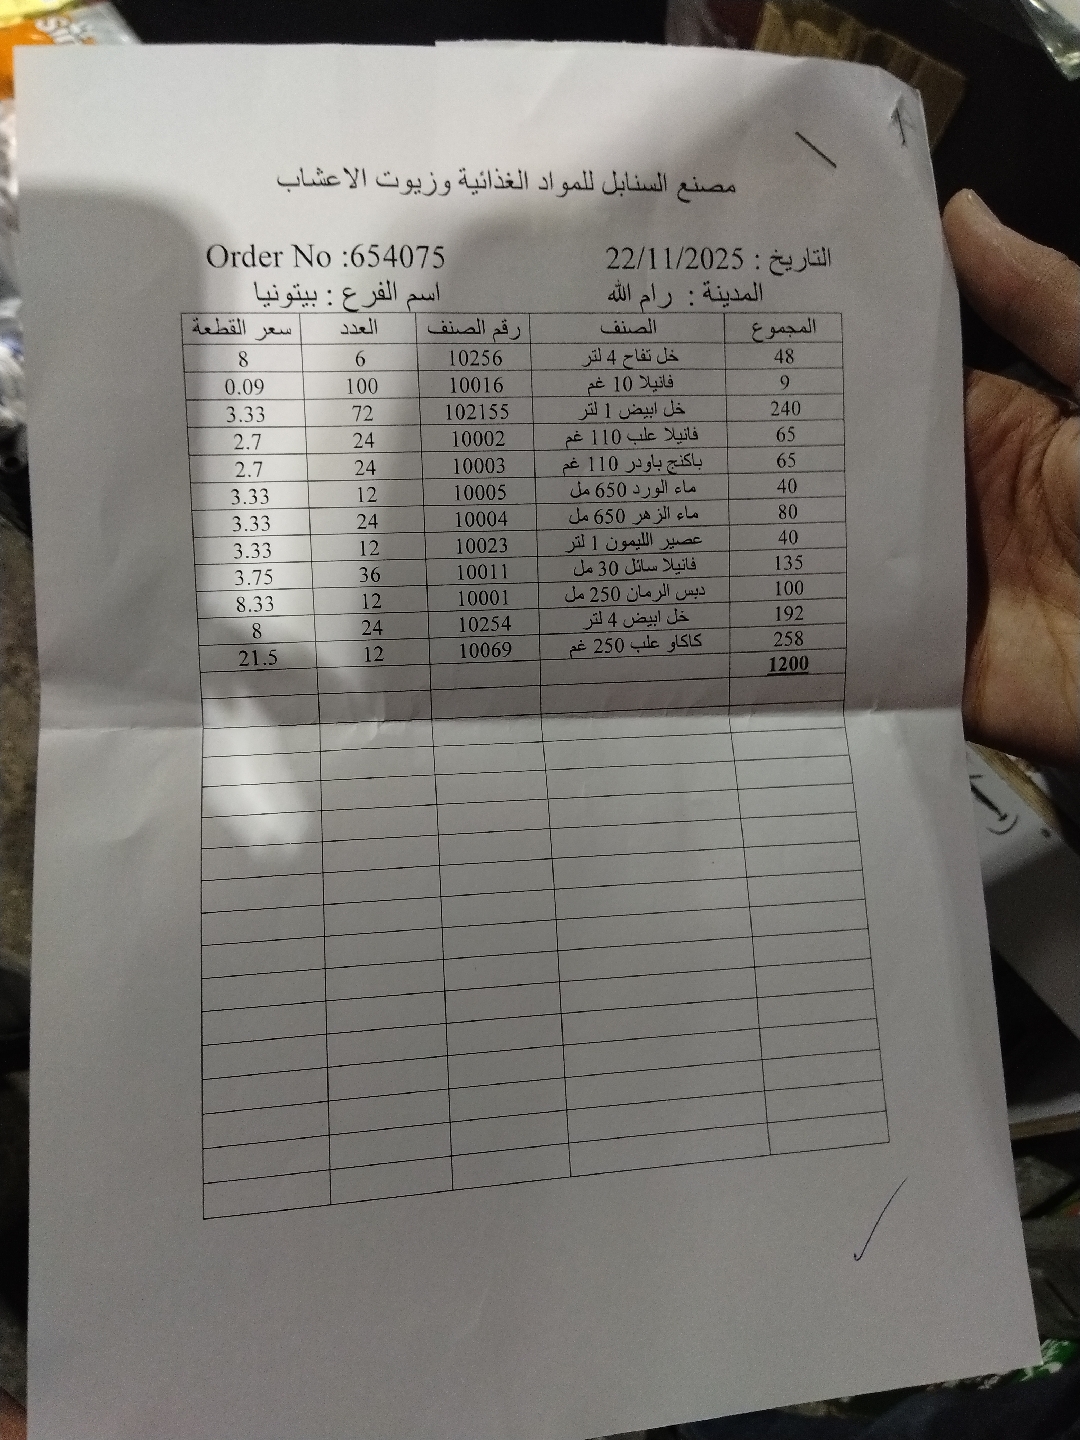 مصنع السنابل للمواد الغذائية وزيوت الاعشاب
التاريخ : 22/11/2025 Order No :654075
المدينة : رام الله اسم الفرع : بيتونيا
المجموع الصنف رقم الصنف العدد سعر القطعة
48 خل تفاح 4 لتر 10256 6 8
9 فانيلا 10 غم 10016 100 0.09
240 خل ابيض 1 لتر 102155 72 3.33
65 فانيلا علب 110 غم 10002 24 2.7
65 باكنج باودر 110 غم 10003 24 2.7
40 ماء الورد 650 مل 10005 12 3.33
80 ماء الزهر 650 مل 10004 24 3.33
40 عصير الليمون 1 لتر 10023 12 3.33
135 فانيلا سائل 30 مل 10011 36 3.75
100 دبس الرمان 250 مل 10001 12 8.33
192 خل ابيض 4 لتر 10254 24 8
258 كاكاو علب 250 غم 10069 12 21.5
1200